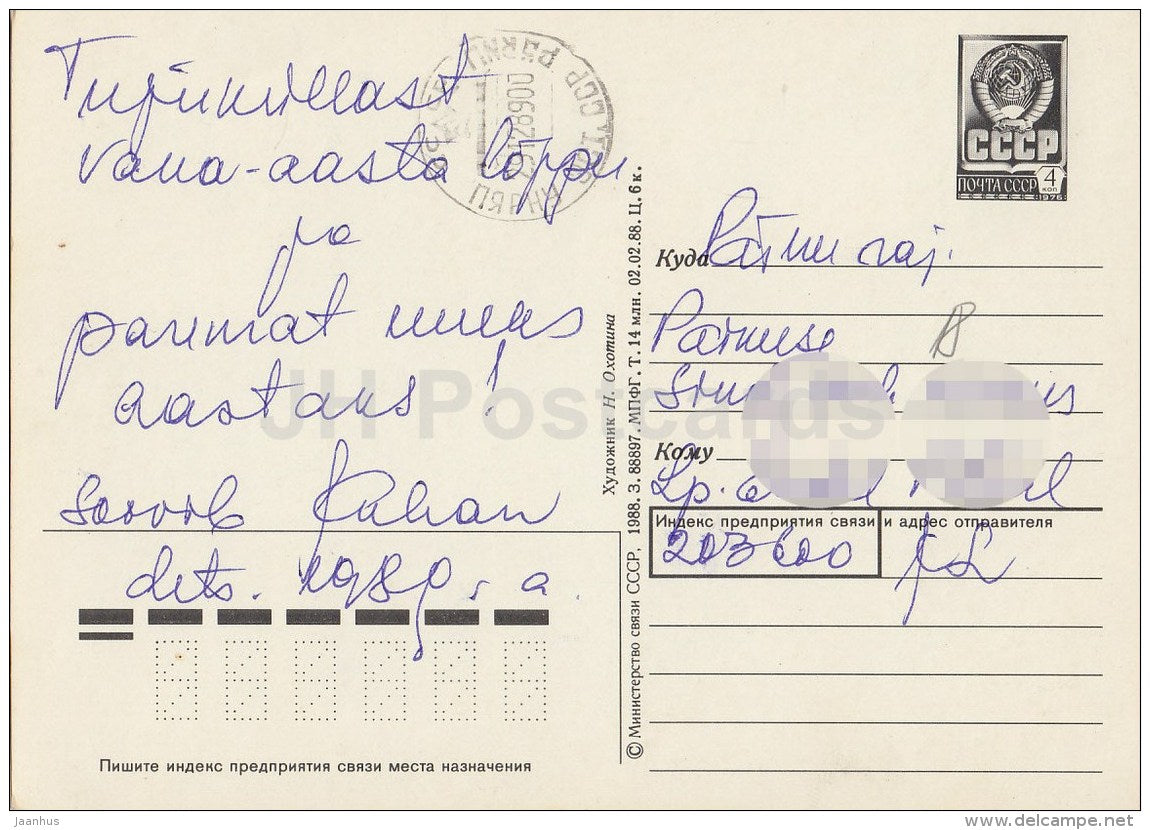 Tujuküllast
vana-aasta lõppu
ja
parimat uueks
aastaks!
Soovib Juhan
dets. 1989. a.
ПЯРНУ
PÄRNU
СССР
ПОЧТА СССР
4
коп
1976
Куда Pärnu raj.
Pärnu
8
Кому
Lp.
Индекс предприятия связи и адрес отправителя
203600
© Министерство связи СССР, 1988. З. 88897. МПФГ. Т. 14 млн. 02.02.88. Ц. 6 к.
Художник Н. Охотина
Пишите индекс предприятия связи места назначения
JH Postcards
Jaanhus
www.delcampe.net